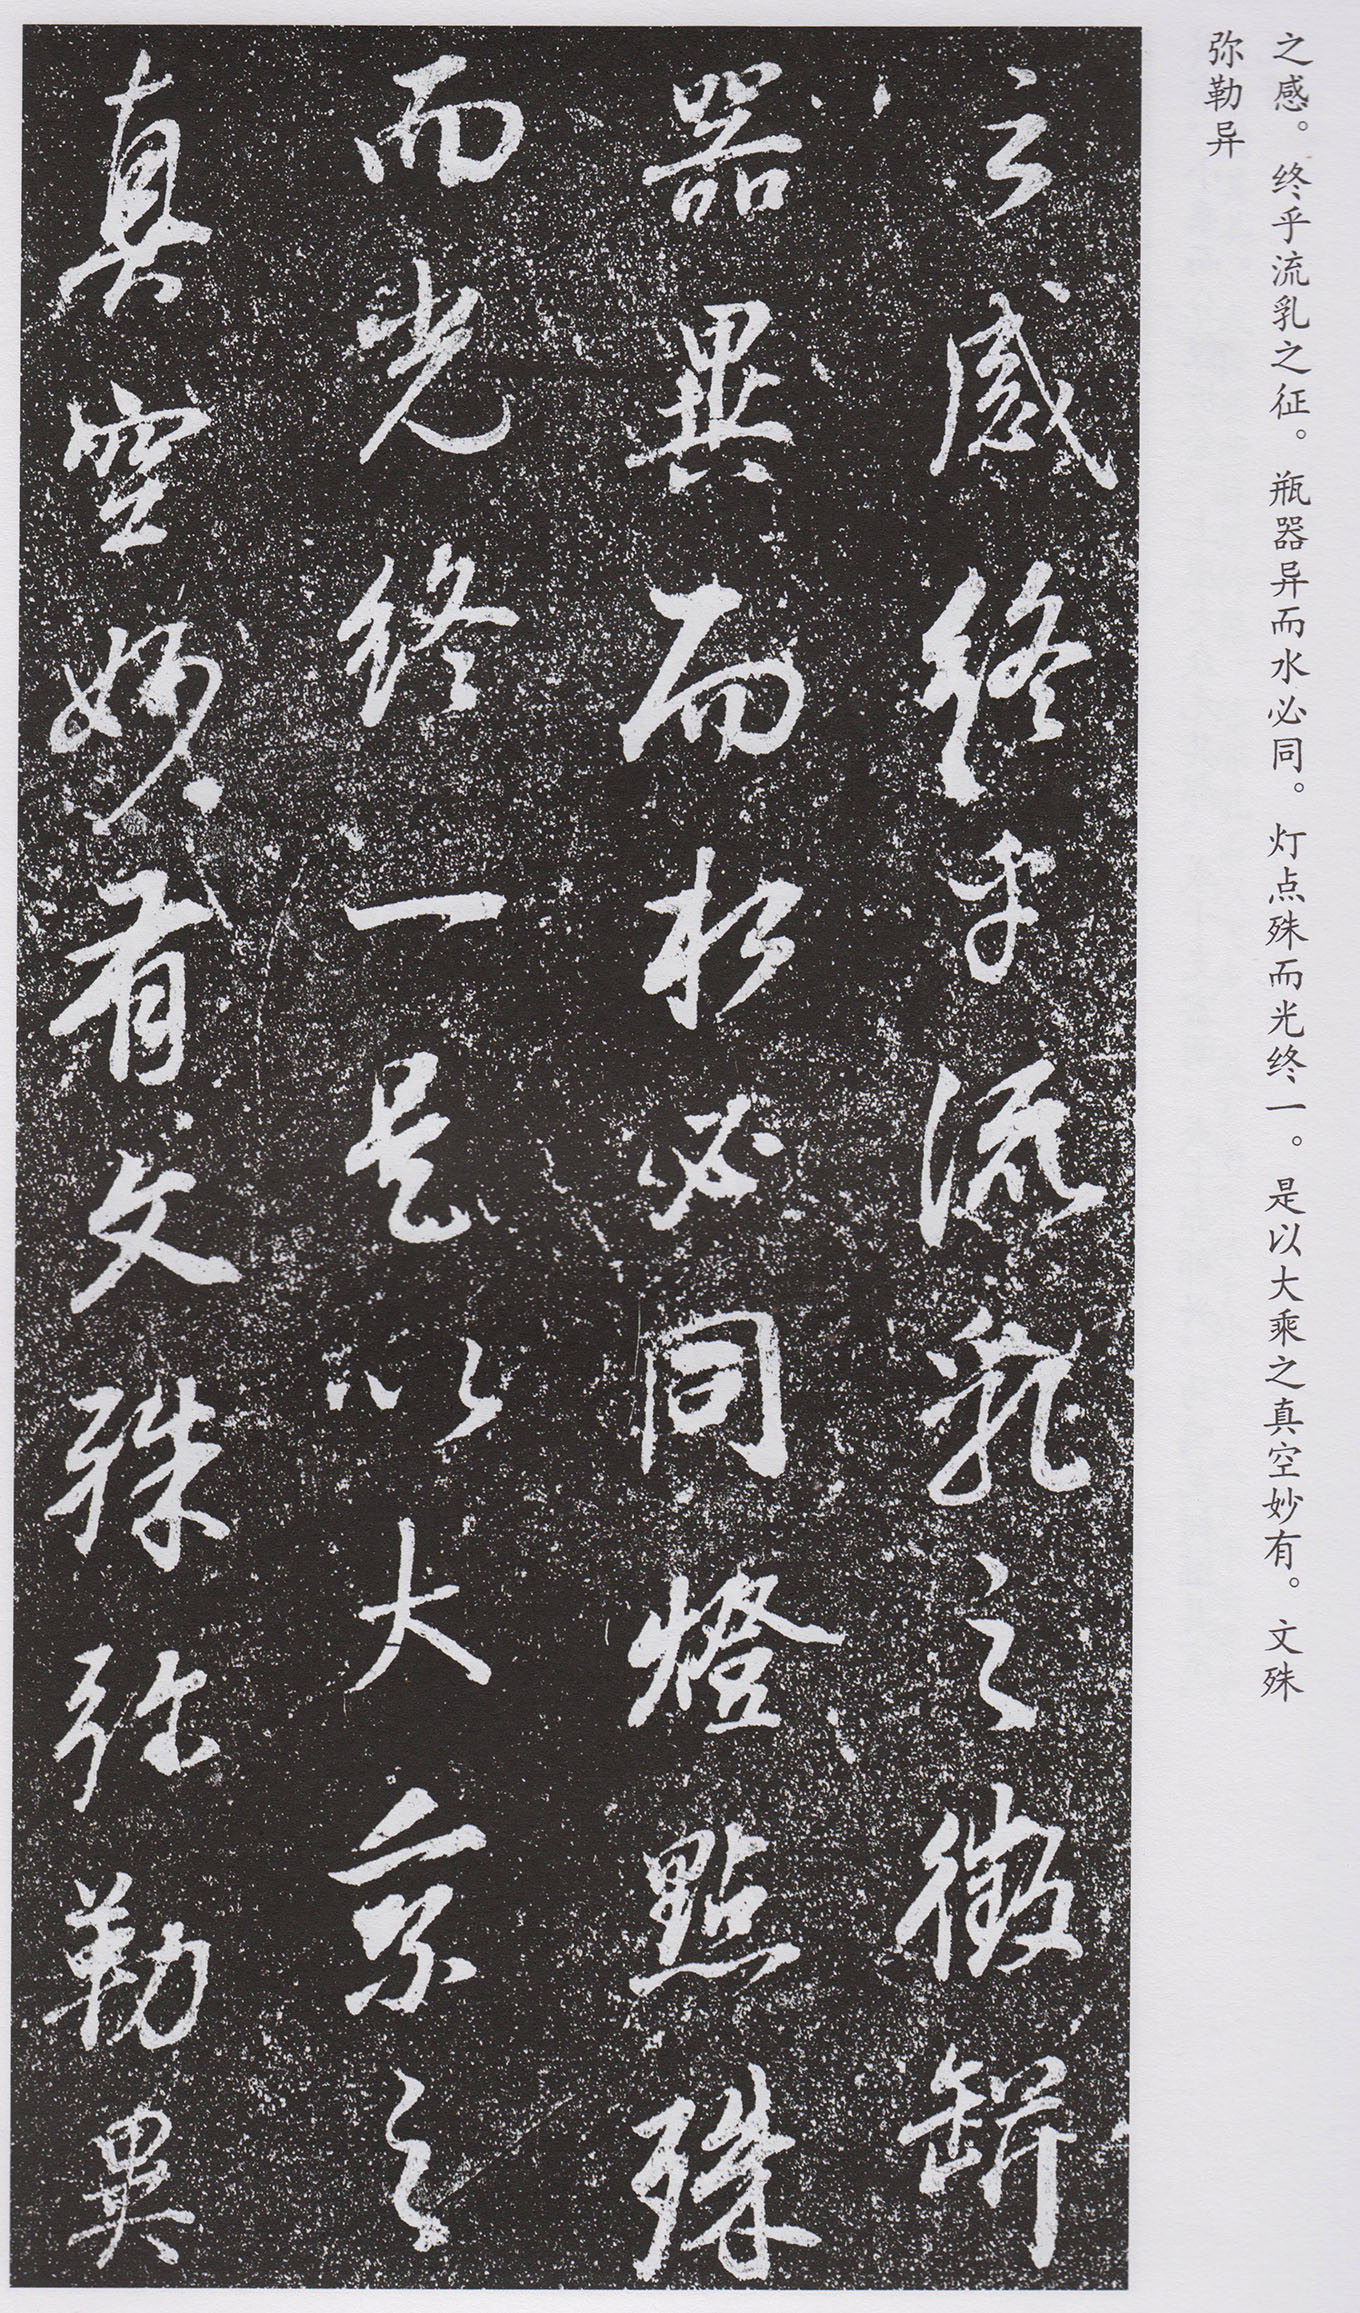 之感。终乎流乳之征。瓶器异而水必同。灯点殊而光终一。是以大乘之真空妙有。文殊
弥勒异
之感終乎流乳之徵缾
器異而於必同燈點殊
而光終一是以大乘之
真空妙有文殊弥勒異